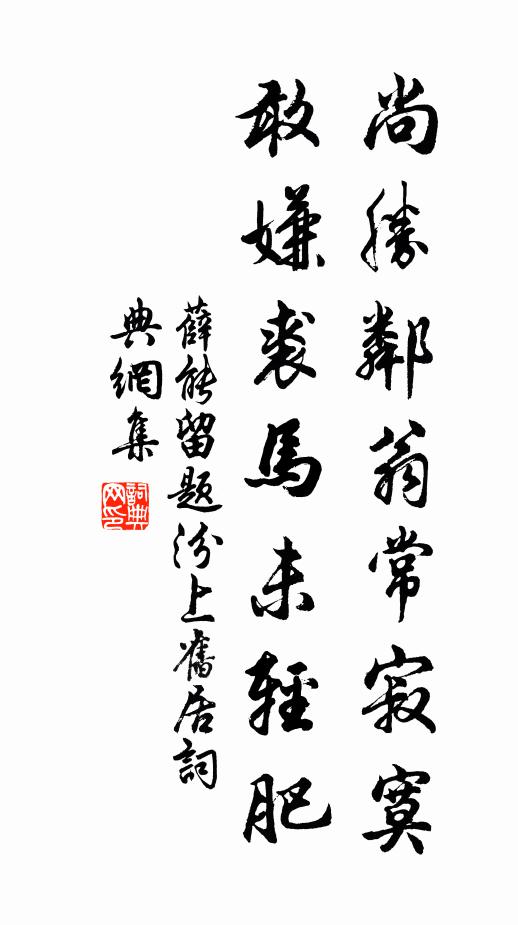 尚勝鄰翁常寂寞
敢嫌裘馬未輕肥
薛能留題汾上舊居詞
典網集
詞典网印